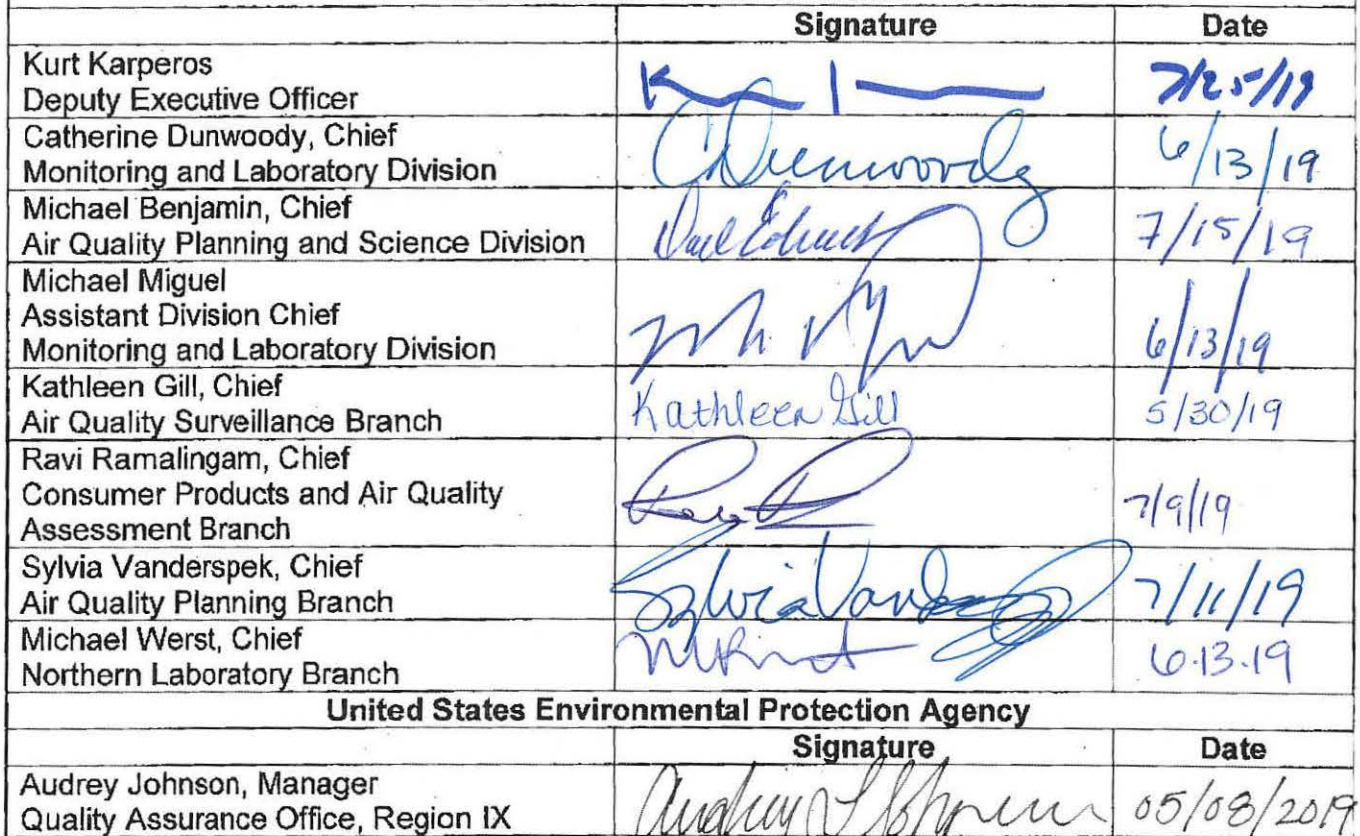 Signature Date
Kurt Karperos
Deputy Executive Officer
7/25/19
Catherine Dunwoody, Chief
Monitoring and Laboratory Division
CDunwoody 6/13/19
Michael Benjamin, Chief
Air Quality Planning and Science Division
7/15/19
Michael Miguel
Assistant Division Chief
Monitoring and Laboratory Division
6/13/19
Kathleen Gill, Chief
Air Quality Surveillance Branch
Kathleen Gill 5/30/19
Ravi Ramalingam, Chief
Consumer Products and Air Quality
Assessment Branch
7/9/19
Sylvia Vanderspek, Chief
Air Quality Planning Branch
Sylvia 7/11/19
Michael Werst, Chief
Northern Laboratory Branch
6.13.19
United States Environmental Protection Agency
Signature Date
Audrey Johnson, Manager
Quality Assurance Office, Region IX
Audrey L Johnson 05/08/2019